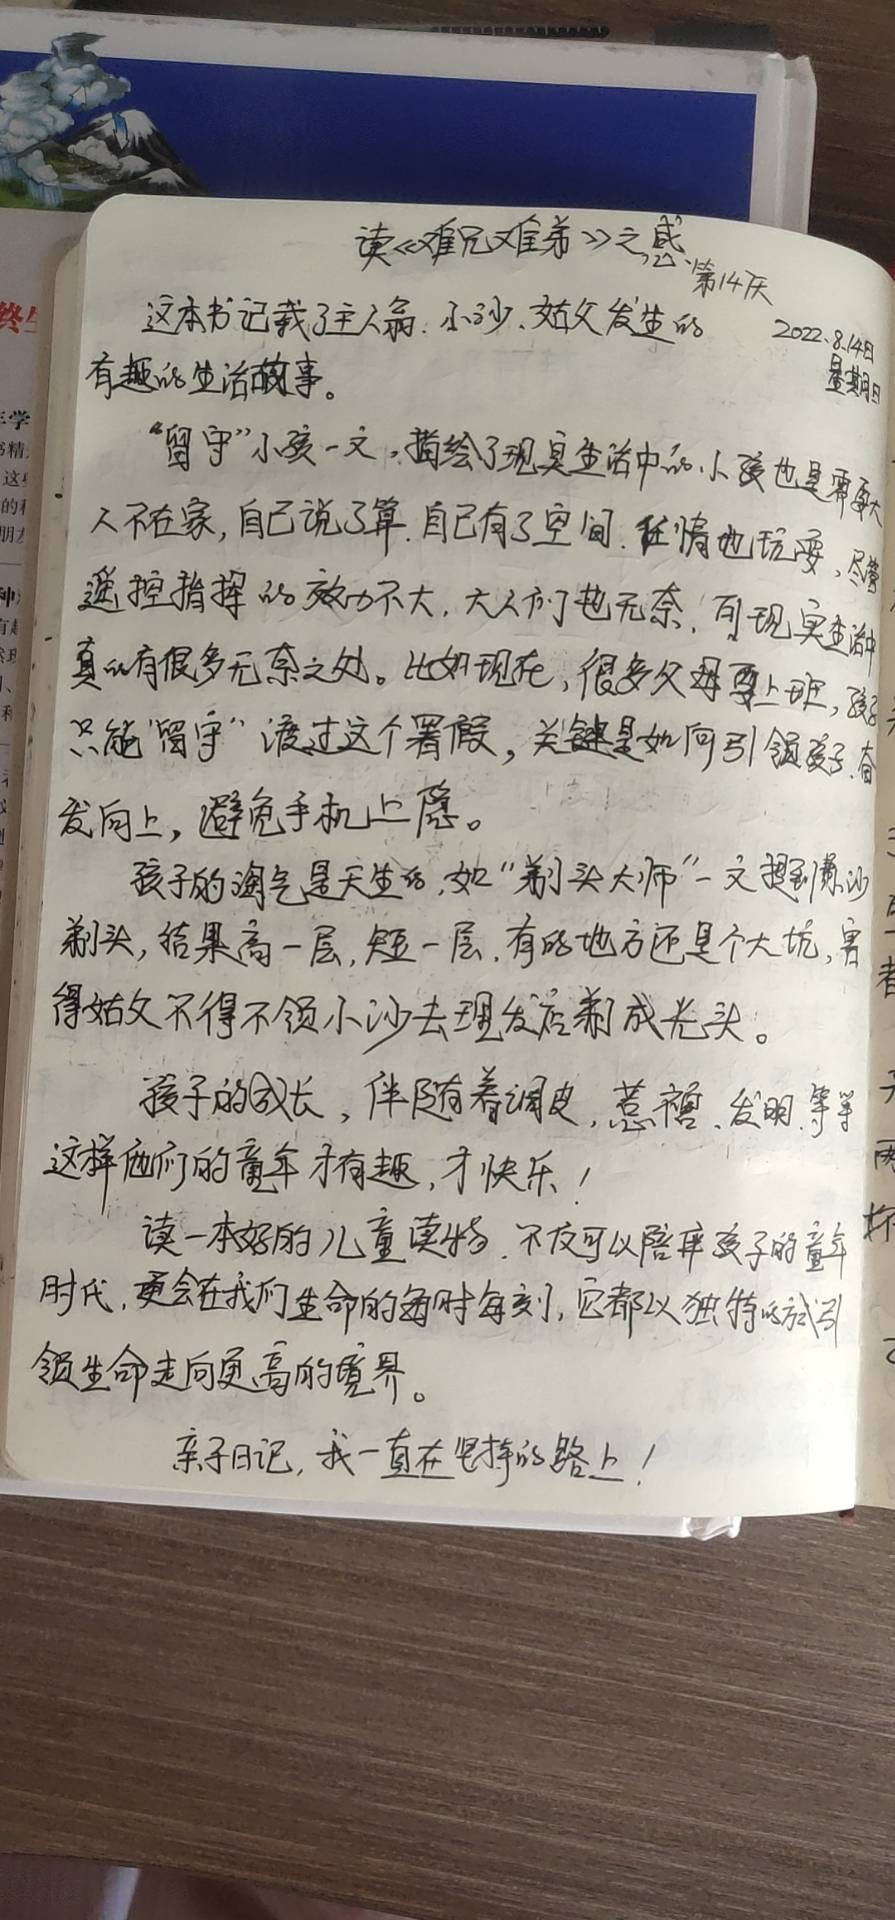 读《难兄难弟》之感
第14天
2022.8.14日
星期日
这本书记载了主人翁、小沙、姑父发生的
有趣的生活故事。
“留守”小孩一文,描绘了现实生活中的小孩也是需要大
人不在家,自己说了算.自己有了空间.任情地玩耍,尽管
遥控指挥的效力不大,大人们也无奈,可现实生活中
真的有很多无奈之处。比如现在,很多父母要上班,孩子
只能“留守”渡过这个署假,关键是如何引领孩子.奋
发向上,避免手机上隐。
孩子的淘气是天生的,如“剃头大师”一文提到为沙
剃头,结果高一层,短一层.有的地方还是个大坑,害
得姑父不得不领小沙去理发店剃成光头。
孩子的成长,伴随着调皮,惹祸、发明、等等
这样他们的童年才有趣,才快乐!
读一本好的儿童读物.不仅可以陪伴孩子的童年
时代,更会在我们生命的每时每刻,它都以独特的方式引
领生命走向更高的境界。
亲子日记,我一直在坚持的路上!